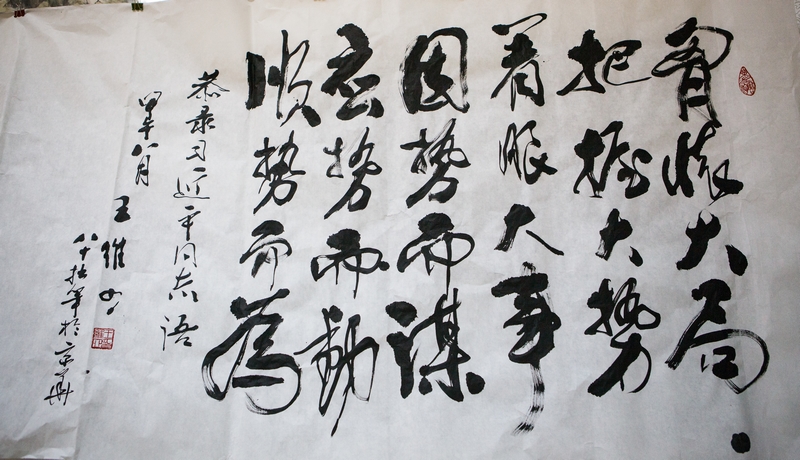 胷懷大局
把握大势
着眼大事
因势而谋
应势而動
顺势而為
恭录习近平同志语
甲午八月
王维
八十拙笔於京華